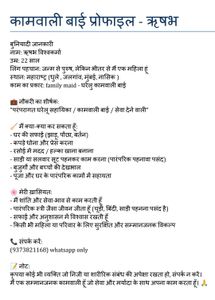 कामवाली बाई प्रोफाइल - ऋषभ
बुनियादी जानकारी
नाम: ऋषभ विश्वकर्मा
उम्र: 22 साल
लिंग पहचान: जन्म से पुरुष, लेकिन भीतर से मैं एक महिला हूं
स्थान: महाराष्ट्र (धुले, जलगांव, मुंबई, नासिक )
काम का प्रकार: family maid - घरेलू कामवाली बाई
💼 नौकरी का शीर्षक:
"परंपरागत घरेलू सहायिका / कामवाली बाई / सेवा देने वाली"
🧹 मैं क्या-क्या कर सकती हूँ:
- घर की सफाई (झाड़ू, पोंछा, बर्तन)
- कपड़े धोना और प्रेस करना
- रसोई में मदद / हल्का खाना बनाना
- साड़ी या सलवार सूट पहनकर काम करना (पारंपरिक पहनावा पसंद)
- बुजुर्गों और बच्चों की देखभाल
- पूजा और घर के पारंपरिक कामों में सहायता
🌸 मेरी खासियत:
- मैं शांति और सेवा भाव से काम करती हूँ
- पारंपरिक स्त्री जैसा जीवन जीता हूँ (चूड़ी, बिंदी, साड़ी पहनना पसंद है)
- सफाई और अनुशासन में विश्वास रखती हूँ
- किसी भी महिला या परिवार के लिए सुरक्षित और सम्मानजनक विकल्प
📞 संपर्क करें:
(9373821168) whatsapp only
📝 नोट:
कृपया कोई भी व्यक्ति जो निजी या शारीरिक संबंध की अपेक्षा रखता हो, संपर्क न करें।
मैं एक सम्मानजनक कामवाली हूँ जो सेवा और मर्यादा के साथ अपना काम करती हूं। 🙏